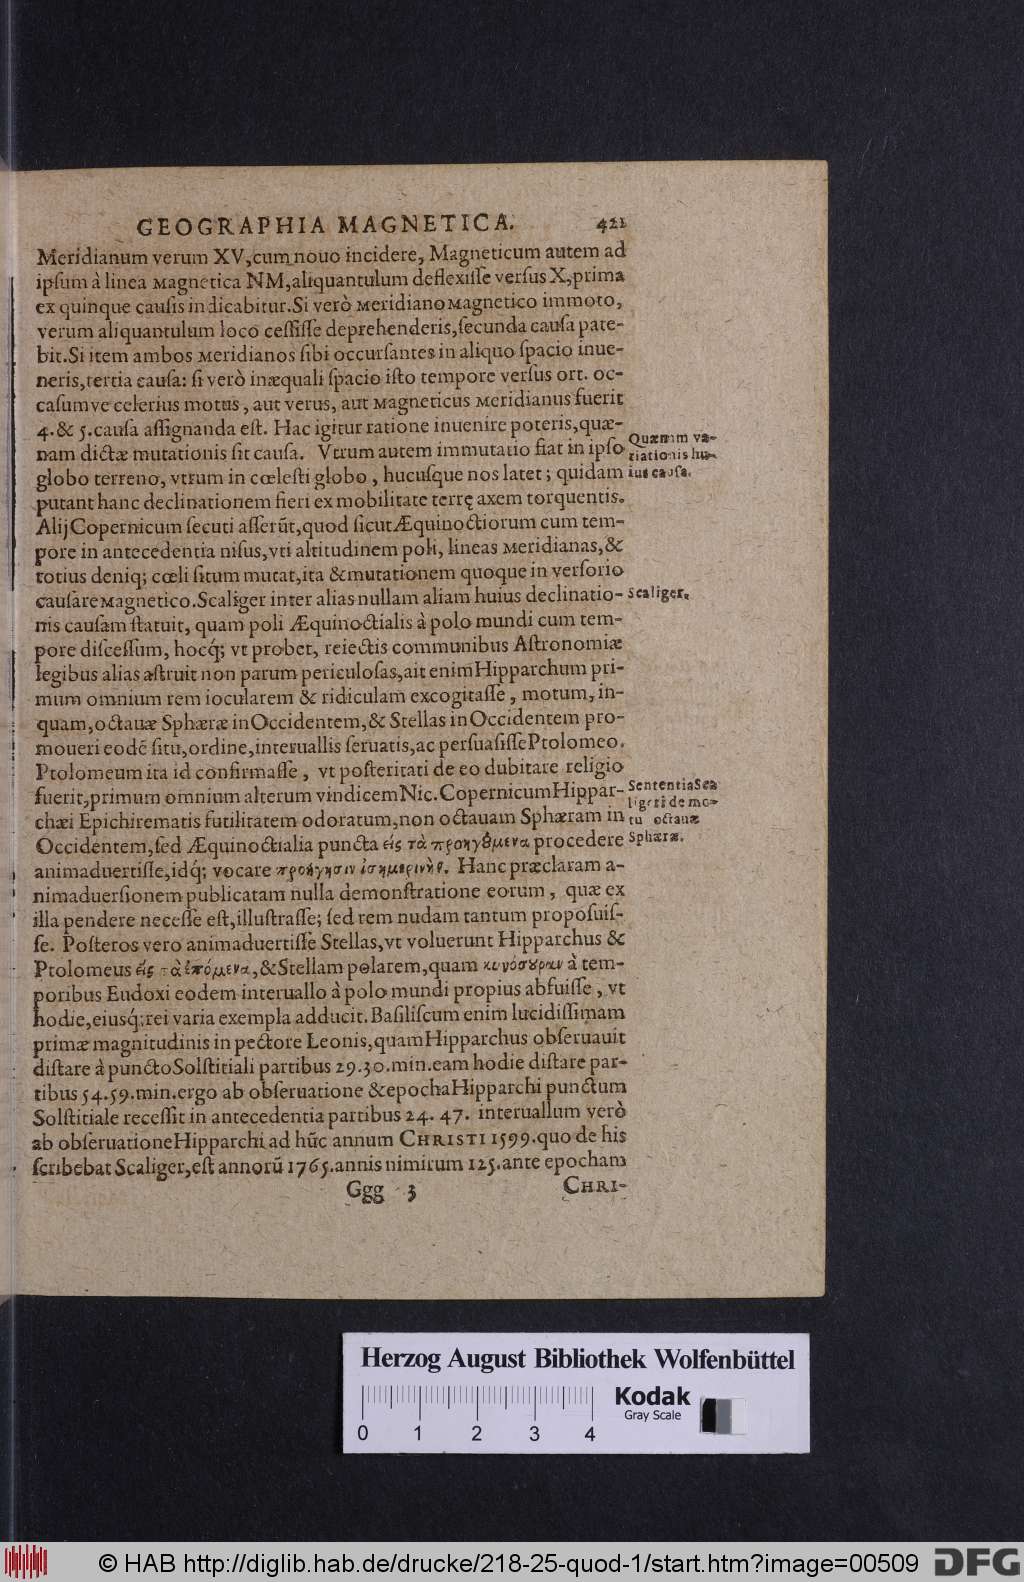 GEOGRAPHIA MAGNETICA. 421
Meridianum verum XV, cum novo incidere, Magneticum autem ad
ipſum à linea magnetica NM, aliquantulum deflexiſſe verſus X, prima
ex quinque cauſis indicabitur. Si verò meridiano magnetico immoto,
verum aliquantulum loco ceſſiſſe deprehenderis, ſecunda cauſa pate-
bit. Si item ambos meridianos ſibi occurſantes in aliquo ſpacio inue-
neris, tertia cauſa: ſi verò inæquali ſpacio iſto tempore verſus ort. oc-
caſumve celerius motus, aut verus, aut magneticus meridianus fuerit
4. & 5. cauſa aſſignanda eſt. Hac igitur ratione inuenire poteris, quæ-
nam dictæ mutationis ſit cauſa. Vtrum autem immutatio fiat in ipſo
globo terreno, vtrum in cœleſti globo, hucuſque nos latet; quidam
Quænam va-
riationis hu-
ius cauſa.
putant hanc declinationem fieri ex mobilitate terrę axem torquentis.
Alij Copernicum ſecuti aſſerūt, quod ſicut Æquinoctiorum cum tem-
pore in antecedentia niſus, vti altitudinem poli, lineas meridianas, &
totius deniq; cœli ſitum mutat, ita & mutationem quoque in verſorio
cauſare magnetico. Scaliger inter alias nullam aliam huius declinatio-
Scaliger.
nis cauſam ſtatuit, quam poli Æquinoctialis à polo mundi cum tem-
pore diſceſſum, hocq́; vt probet, reiectis communibus Aſtronomiæ
legibus alias aſtruit non parum periculoſas, ait enim Hipparchum pri-
mum omnium rem iocularem & ridiculam excogitaſſe, motum, in-
quam, octauæ Sphæræ in Occidentem, & Stellas in Occidentem pro-
moueri eodē ſitu, ordine, interuallis ſeruatis, ac perſuaſiſſe Ptolomeo.
Ptolomeum ita id confirmaſſe, vt poſteritati de eo dubitare religio
fuerit, primum omnium alterum vindicem Nic. Copernicum Hippar-
chæi Epichirematis futilitatem odoratum, non octauam Sphæram in
Occidentem, ſed Æquinoctialia puncta εἰς τὰ προηγȣ́μενα procedere
Sententia Sca
ligeri de mo-
tu octauæ
Sphæræ.
animaduertiſſe, idq́; vocare προήγησιν ἰσημερινῆς. Hanc præclaram a-
nimaduerſionem publicatam nulla demonſtratione eorum, quæ ex
illa pendere neceſſe eſt, illuſtraſſe; ſed rem nudam tantum propoſuiſ-
ſe. Poſteros vero animaduertiſſe Stellas, vt voluerunt Hipparchus &
Ptolomeus εἰς τὰ ἑπόμενα, & Stellam polarem, quam κυνόσȣραν à tem-
poribus Eudoxi eodem interuallo à polo mundi propius abfuiſſe, vt
hodie, eiusq́; rei varia exempla adducit. Baſiliſcum enim lucidiſſimam
primæ magnitudinis in pectore Leonis, quam Hipparchus obſeruauit
diſtare à puncto Solſtitiali partibus 29. 30. min. eam hodie diſtare par-
tibus 54. 59. min. ergo ab obſeruatione & epocha Hipparchi punctum
Solſtitiale receſſit in antecedentia partibus 24. 47. interuallum verò
ab obſeruatione Hipparchi ad hūc annum CHRISTI 1599. quo de his
ſcribebat Scaliger, eſt annorū 1765. annis nimirum 125. ante epocham
Ggg 3 CHRI-
Herzog August Bibliothek Wolfenbüttel
Kodak
Gray Scale
0 1 2 3 4
© HAB http://diglib.hab.de/drucke/218-25-quod-1/start.htm?image=00509 DFG